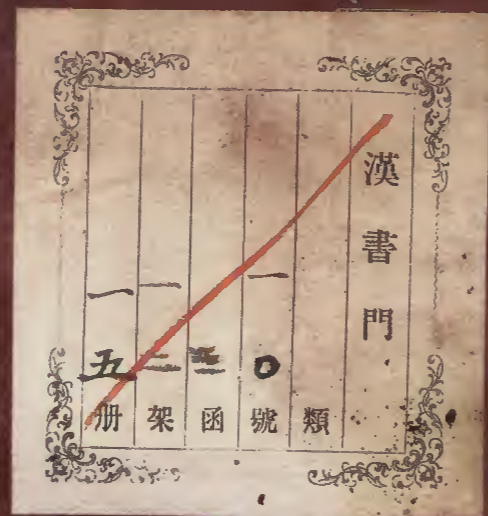 漢書門
類
一〇號
函
一二架
一五册